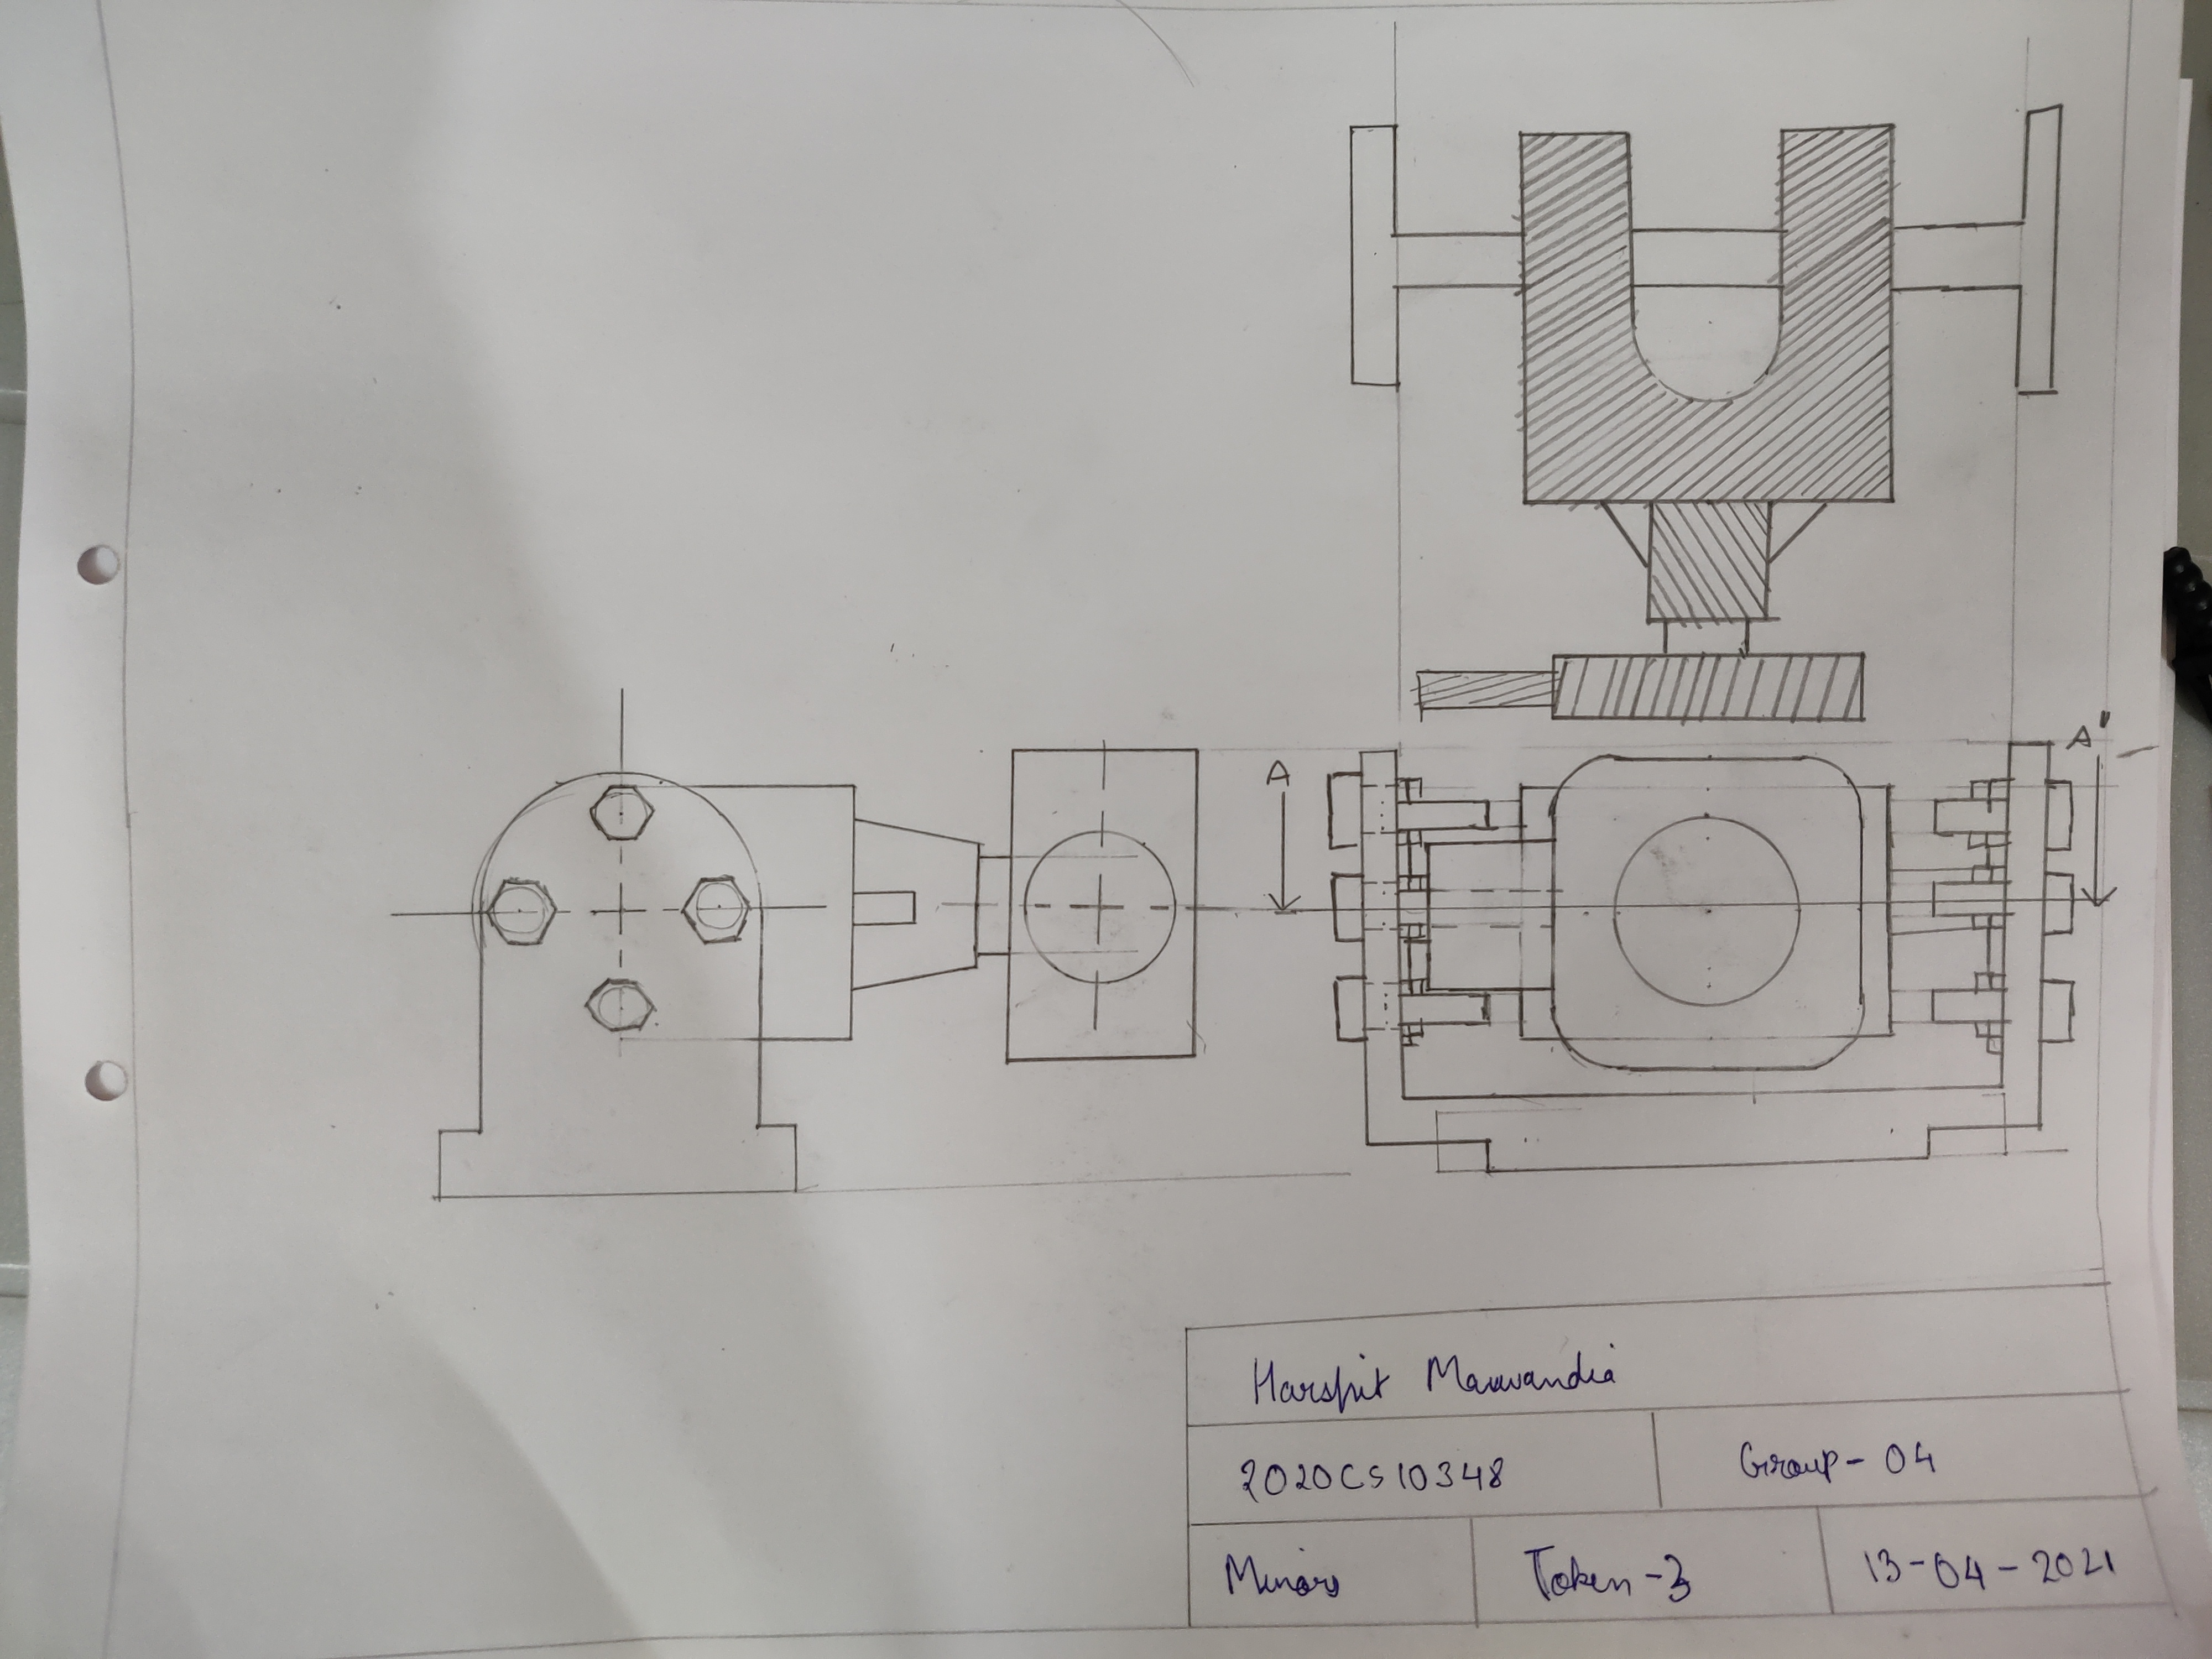 A A'
Harshit Mawandia
2020CS10348 Group - 04
Minors Token - 3 13-04-2021